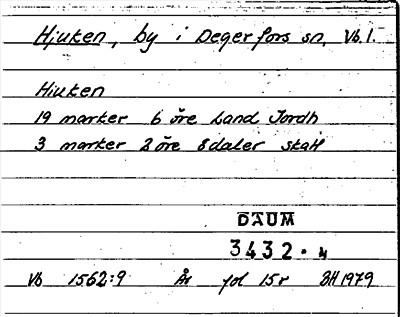 Hjuken, by i Degerfors sn, Vb. l.
Hiuken
19 marker 6 öre Land Jordh
3 marker 2 öre 8 daler skatt
DAUM
3432.4
Vb 1562:9 År fol 15r BH 1979